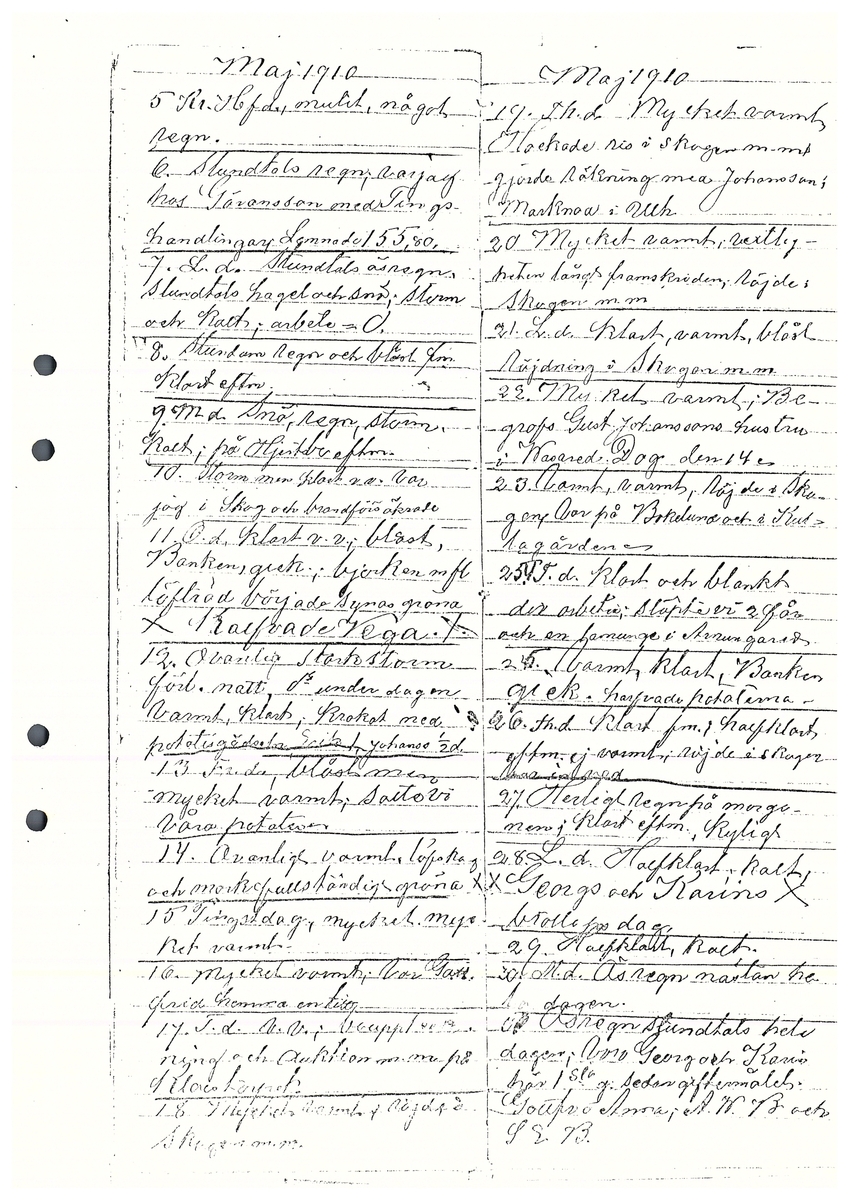 Maj 1910
5 Kr. Hfd., mulit, något
regn.
6. Stundtals regn; var jag
hos Göransson med Tings-
handlingar, Lemnade 155,80.
7. L. d. Stundtals ösregn,
stundtals hagel och snö; storm
och kalt; arbete = 0.
8. Stundom regn och blåst fm.
klart eftm.
9. M. d. Snö, regn, storm,
kalt; på eftm.
10. Storm men klart v.v. var
jag i Skog och brandförsäkrade
11. O. d. klart v.v.; blåst,
Banken gick; björken m fl
löfträd började synas gröna
X Kalfvade Vega. X
12. Ovanlig stark storm
förl. natt, do under dagen
varmt, klart; krokat ned
potatisgödseln, Johans 2 d.
13 Fred., blåst men
mycket varmt; satte vi
våra potates
14. Ovanligt varmt, löfskog
och mark fullständigt gröna X
15 Pingstdag, mycket, myc
ket varmt.
16. Mycket varmt; Var Gott-
frid hemma en tid
17. T. d. v.v.;
ning och Auktion m.m. på
18. Mycket varmt; röjde i
Skogen m.m.
Maj 1910
19. Th. d. Mycket varmt,
ris i skogen m.m.
gjorde räkning med Johansson;
Marknad i Uh
20. Mycket varmt; vextlig-
heten långt framskriden; röjde i
Skogen m.m
21. L. d. klart, varmt, blåst
röjdning i Skogen m.m.
22. Mycket varmt; Be-
grofs Gust. Johanssons hustru
i Wasared. Dog den 14 e
23. Varmt, varmt, röjde i Sko-
gen; Var på Bokelund och i Kul-
lagården
T. d. klart och blankt
div arbete; släpte vi 2 får
och en i
25. Varmt, klart, Banken
gick. harfvade potaterna
26. Th. d. klart fm.; halfklart
eftm. ej varmt; röjde i skogen
27. Herligt regn på morgo-
nen; klart eftm. kyligt
28. L. d. Halfklart, kalt,
X Georgs och Karins X
bröllopsdag
29. Halfklart, kalt.
30. M. d. Ösregn nästan he
la dagen.
Ösregn stundtals hela
dagen; Voro Georg och Karin
här 1sta g. sedan giftermålet.
Gottfr. o Anna; A. W. B. och
S E B.